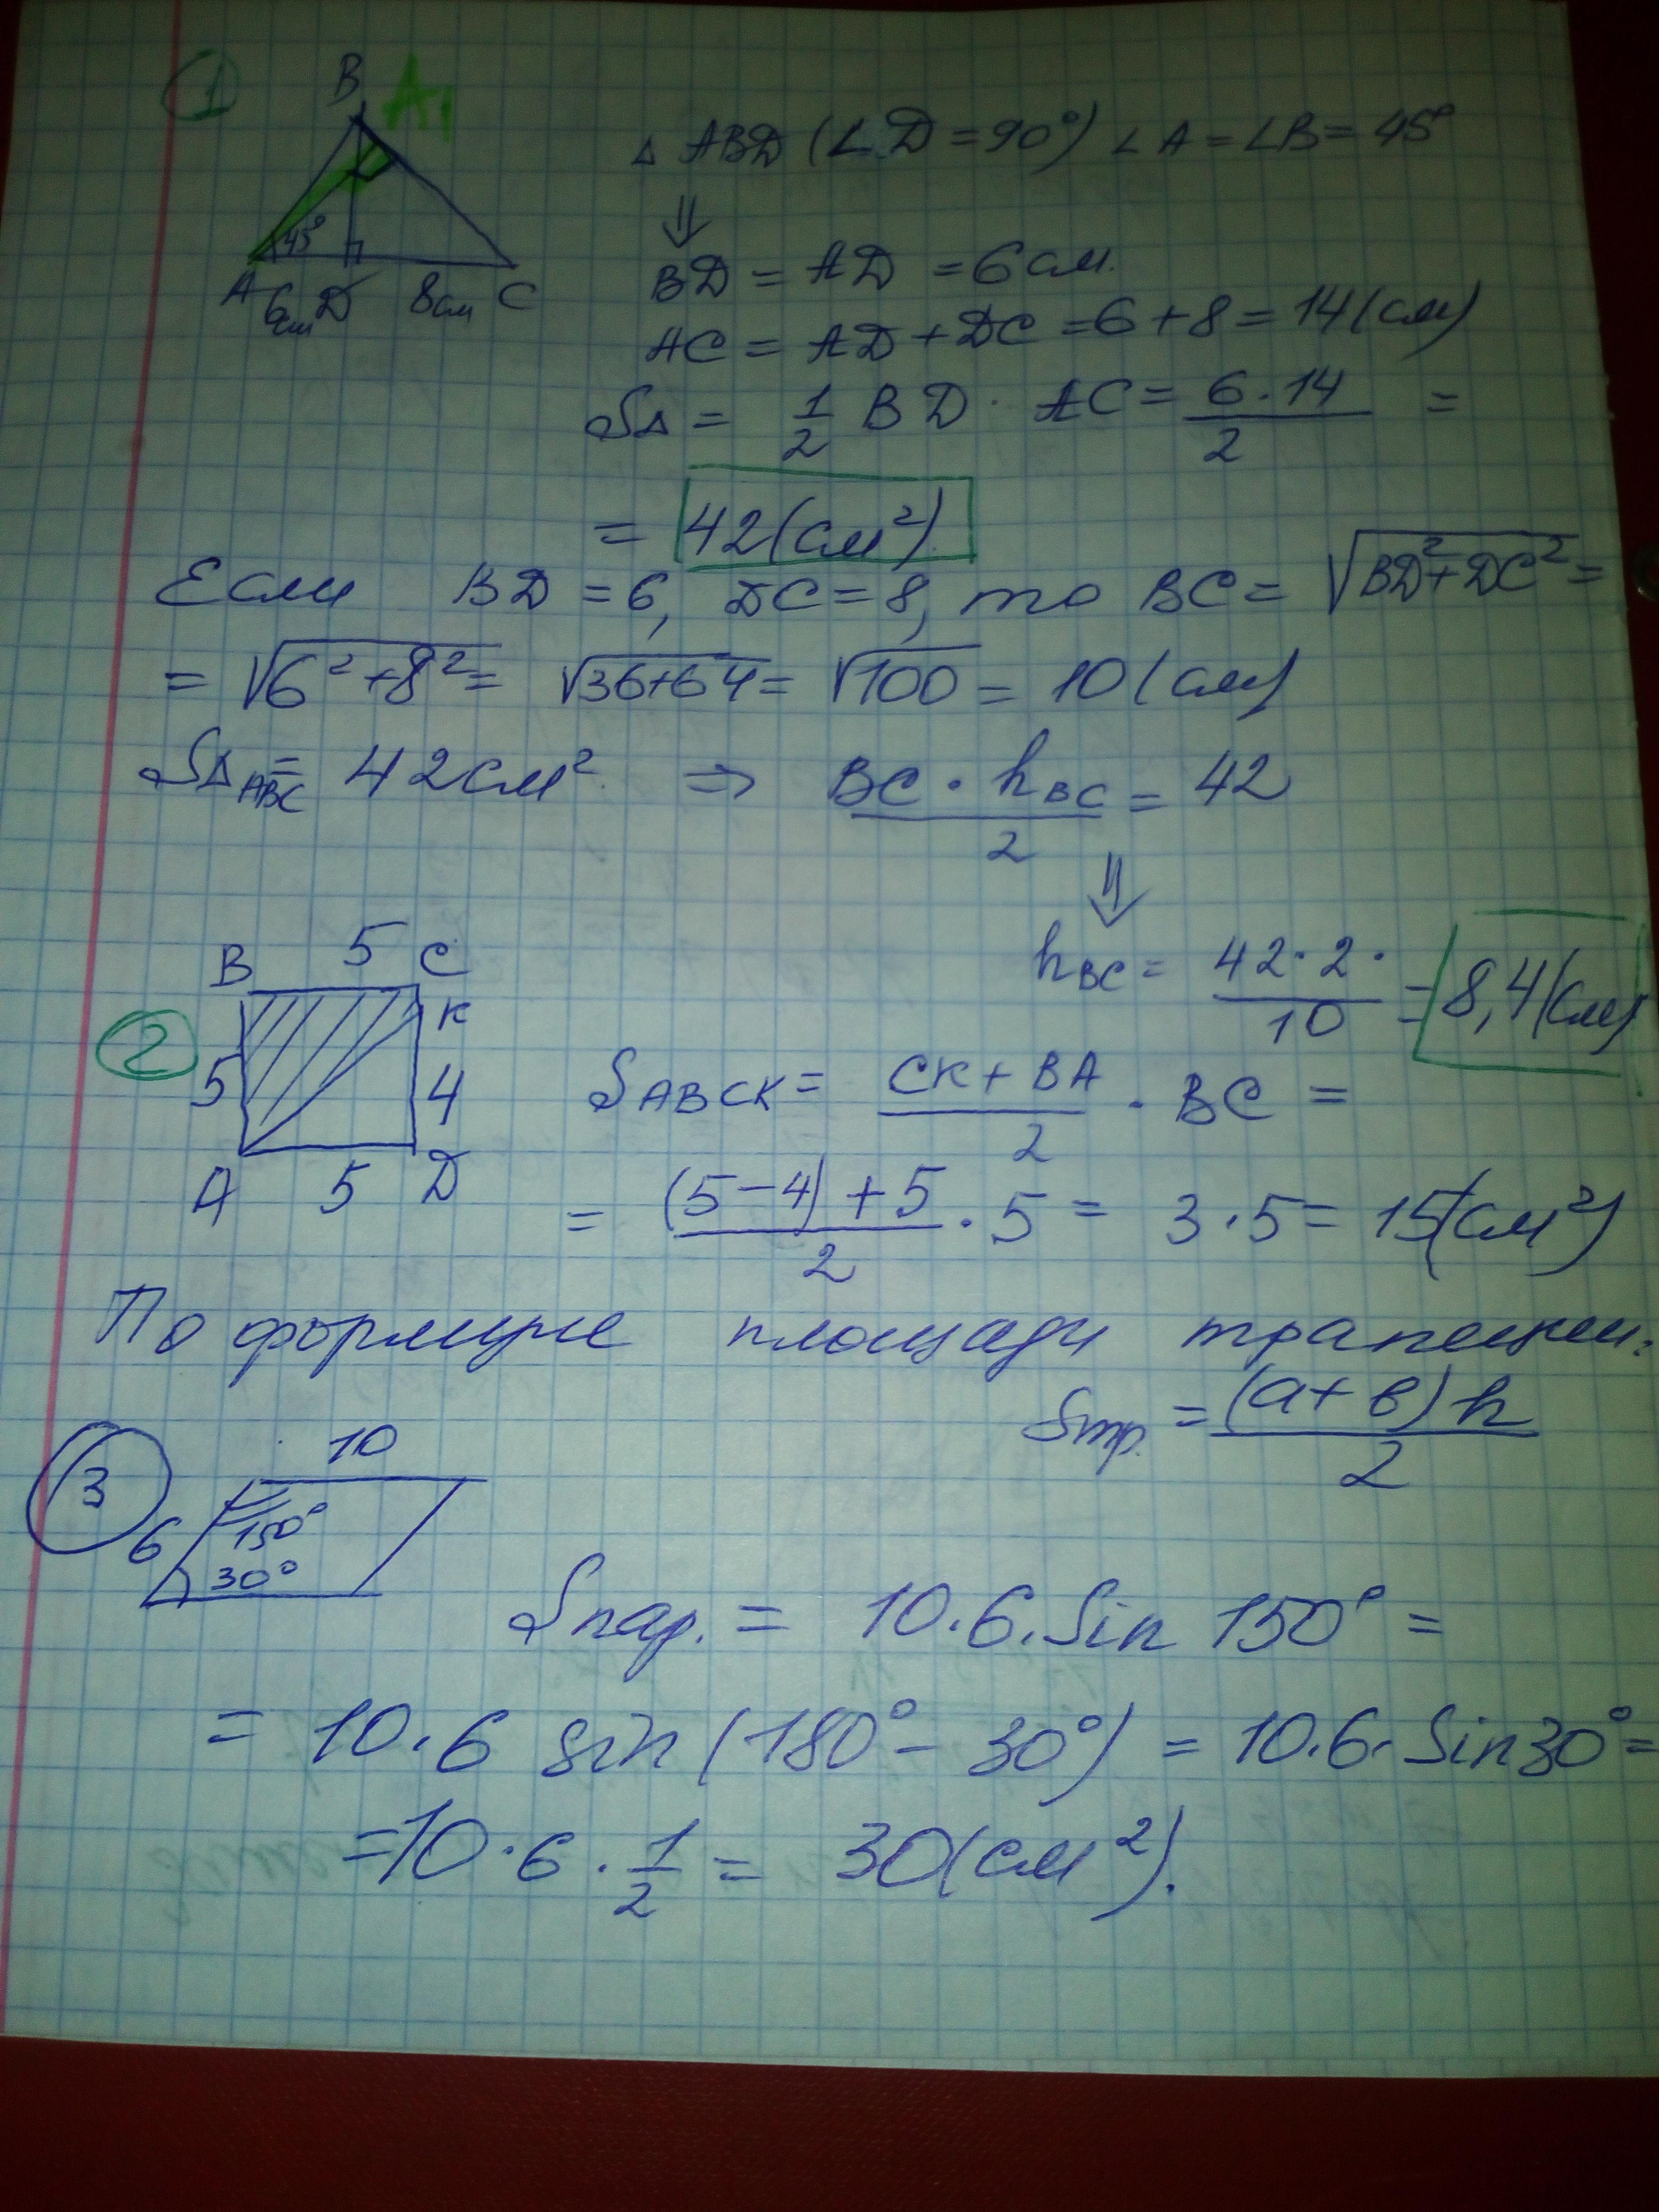 1
B A₁
45°
A 6см D 8см C
△ ABD (∠D = 90°) ∠A = ∠B = 45°
⇓
BD = AD = 6 см.
AC = AD + DC = 6 + 8 = 14 (см)
S△ = 1/2 BD · AC = 6 · 14 / 2 =
= 42 (см²).
Если BD = 6, DC = 8, то BC = √(BD² + DC²) =
= √(6² + 8²) = √(36 + 64) = √100 = 10 (см)
S△ABC = 42 см² ⇒ BC · hBC / 2 = 42
⇓
hBC = 42 · 2 · / 10 = 8,4 (см)
2
B 5 C
K
5 4
A 5 D
SABCK = CK + BA / 2 · BC =
= (5 − 4) + 5 / 2 · 5 = 3 · 5 = 15 (см²)
По формуле площади трапеции:
Sтр. = (a + b) h / 2
3
10
6 150°
30°
Sпар. = 10 · 6 · Sin 150° =
= 10 · 6 sin (180° − 30°) = 10 · 6 · Sin 30° =
= 10 · 6 · 1/2 = 30 (см²).